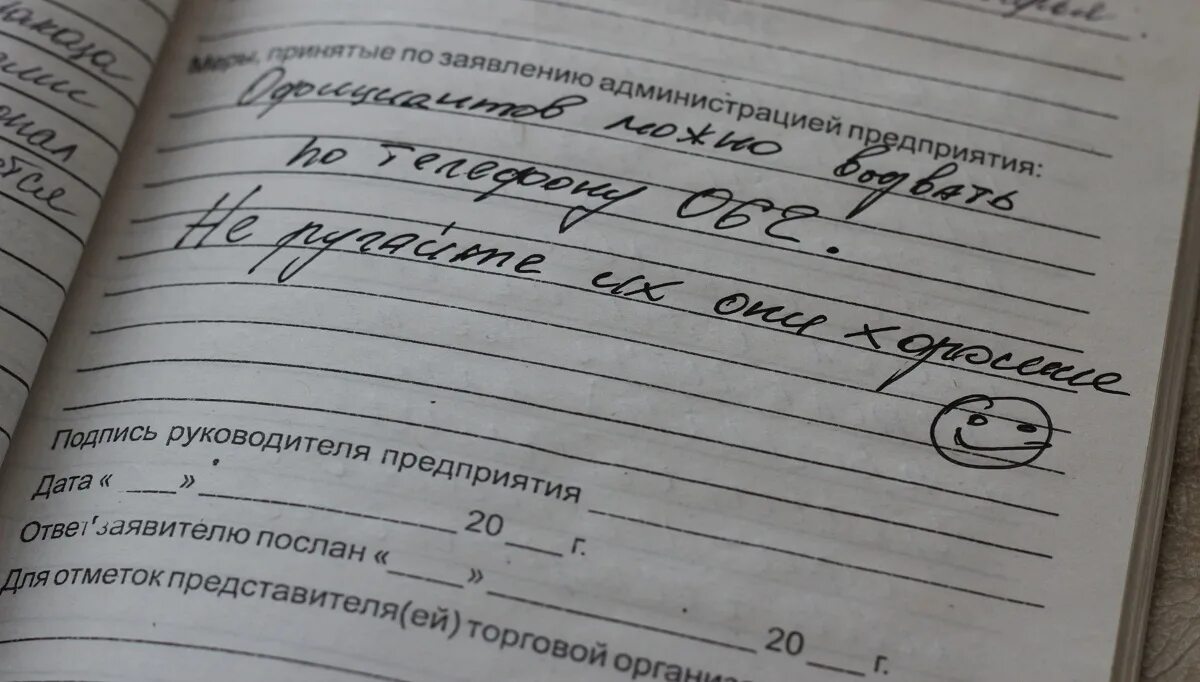 лакоза
Меры, принятые по заявлению администрацией предприятия:
Официантов можно вызвать
по телефону 062.
Не ругайте их они хорошие
Подпись руководителя предприятия
Дата « ___ » ___ 20 ___ г.
Ответ заявителю послан « ___ » ___ 20 ___ г.
Для отметок представителя(ей) торговой организа